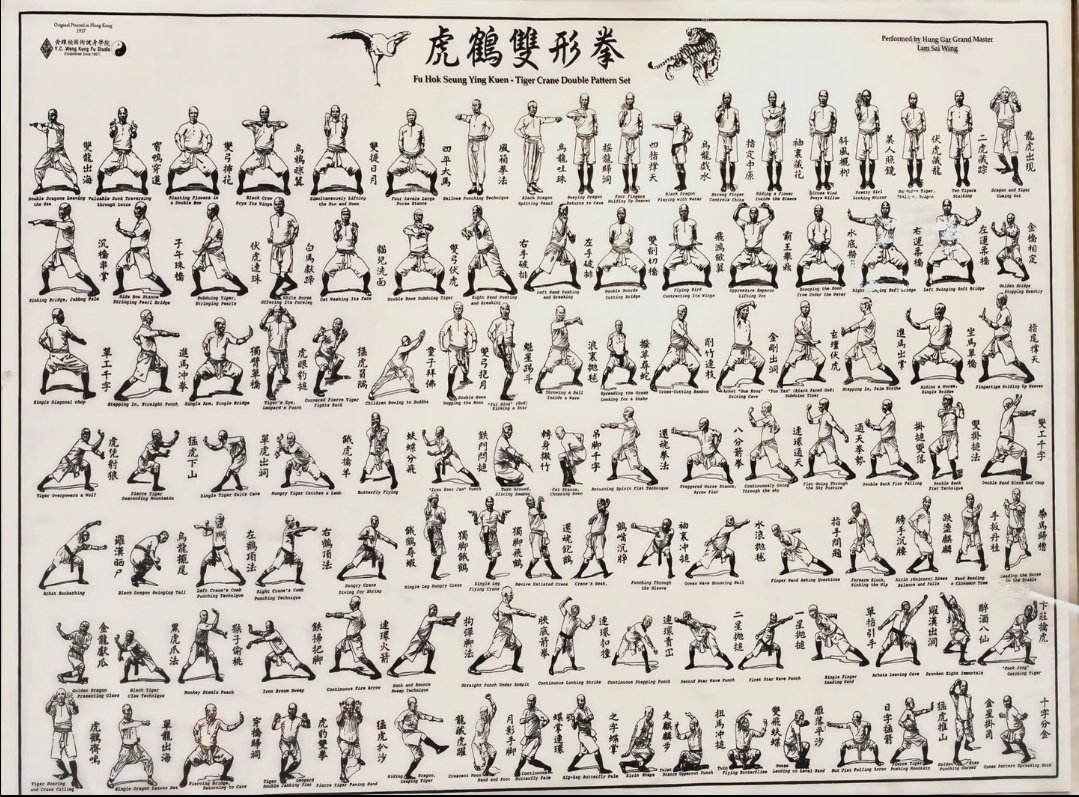 Original Printed in Hong Kong
1957
Y.C. Wong Kung Fu Studio
Established Since 1967
虎鶴雙形拳
Fu Hok Seung Ying Kuen - Tiger Crane Double Pattern Set
Performed by Hung Gar Grand Master
Lam Sai Wing
雙龍出海
雙弓插花
雙提日月
四平大馬
風箱拳法
烏龍吐珠
搖龍歸洞
四指撐天
烏龍戲水
指定中原
袖裏藏花
斜風擺柳
美人照鏡
伏虎藏龍
二虎藏踪
龍虎出現
Double Dragons Leaving the Sea
Valuable Duck Traversing through Lotus
Planting Flowers in a Double Bow
Black Crow Dyes Its Wings
Simultaneously Lifting the Sun and Moon
Four Levels Large Horse Stance
Bellows Punching Technique
Black Dragon Spitting Pearl
Swaying Dragon Returns to Cave
Four Fingers Holding Up Heaven
Black Dragon Playing with Water
Strong Finger Controls China
Hiding a Flower Inside the Sleeve
Cross Wind Sways Willow
Pretty Girl Looking Mirror
Two Tigers Stalking
Dragon and Tiger Coming Out
沉橋串掌
子午珠橋
伏虎連珠
白馬獻蹄
貓兒洗面
雙弓伏虎
右手破排
左手破排
雙劍切橋
霸王舉鼎
右運柔橋
左運柔橋
金橋相定
Sinking Bridge, Jabbing Palm
Side Bow Stance Stringing Pearl Bridge
Subduing Tiger, Stringing Pearls
White Horse Offering Its Foreleg
Cat Washing Its Face
Double Bows Subduing Tiger
Right Hand Pushing and Breaking
Left Hand Pushing and Breaking
Double Swords Cutting Bridge
Flying Bird Contracting Its Wings
Oppressive Emperor Lifting Urn
Scooping the Moon from Under the Water
Left Swinging Soft Bridge
Golden Bridge Stopping Exactly
單工千字
進馬冲拳
獨臂單橋
虎眼豹搥
猛虎負隅
童子拜佛
雙弓抱月
魁星踢斗
浪裏拋毬
撥草尋蛇
削竹連枝
金剛出洞
玄壇伏虎
進馬出掌
坐馬單橋
指尾撐天
Single Diagonal Chop
Stepping In, Straight Punch
Single Arm, Single Bridge
Tiger's Eye, Leopard's Punch
Cornered Fierce Tiger Fights Back
Children Bowing to Buddha
Double Bows Hugging the Moon
Throwing a Ball Inside a Wave
Spreading the Grass Looking for a Snake
Cross-Cutting Bamboo
Stepping In, Palm Strike
Riding a Horse, Single Bridge
Fingertips Holding Up Heaven
猛虎下山
單虎出洞
餓虎擒羊
蚨蝶分飛
鉄門閂搥
轉身撇竹
吊脚千字
還魂拳法
八分箭拳
連環通天
掛搥雙落
雙掛搥法
雙工千字
Tiger Overpowers a Wolf
Fierce Tiger Descending Mountain
Single Tiger Exits Cave
Hungry Tiger Catches a Lamb
Butterfly Flying
"Iron Door Jam" Punch
Turn Around, Slicing Bamboo
Cat Stance, Chopping Down
Returning Spirit Fist Technique
Staggered Horse Stance, Arrow Fist
Continuously Going Through the Sky
Fist Going Through the Sky Posture
Double Back Fist Falling
Double Back Fist Technique
Double Hand Block and Chop
羅漢晒尸
烏龍擺尾
左鶴頂法
右鶴頂法
餓鶴尋蝦
獨脚餓鶴
獨脚飛鶴
還魂飽鶴
鶴嘴沉睜
袖裏冲搥
水浪拋毬
指手問題
膀手沉腰
跌蕩麒麟
手扳丹桂
帶馬歸槽
Arhat Sunbathing
Black Dragon Swinging Tail
Left Crane's Comb Punching Technique
Right Crane's Comb Punching Technique
Hungry Crane Diving for Shrimp
Single Leg Hungry Crane
Single Leg Flying Crane
Revive Satiated Crane
Crane's Beak,
Punching Through the Sleeve
Ocean Wave Bouncing Ball
Finger Hand Asking Questions
Forearm Block, Sinking the Hip
Kirin (Unicorn) Loses Balance and Falls
Hand Bending a Cinnamon Tree
Leading the Horse to the Stable
金龍獻爪
黑虎爪法
猴子偷桃
鉄掃把脚
連環火箭
狗彈脚法
腋底箭拳
連環扣搥
二星拋搥
一星拋搥
單指引手
羅漢出洞
醉酒八仙
卞莊擒虎
Golden Dragon Presenting Claws
Black Tiger Claw Technique
Monkey Steals Peach
Iron Broom Sweep
Continuous Fire Arrow
Hook and Bounce Sweep Technique
Straight Punch Under Armpit
Continuous Locking Strike
Continuous Stopping Punch
Second Star Wave Punch
First Star Wave Punch
Single Finger Leading Hand
Arhats Leaving Cave
Drunken Eight Immortals
Catching Tiger
虎鶴齊鳴
單龍出海
穿橋歸洞
虎豹雙拳
猛虎扒沙
龍藏虎躍
月影手脚
蝶掌連環
走麒麟步
祖馬冲搥
雙飛蚨蝶
雁落平沙
日字猛箭
猛虎推山
金星掛角
十字分金
Tiger Roaring and Crane Calling
Single Dragon Leaves Sea
Piercing Bridge, Returning to Cave
Tiger Leopard Double Jabbing Fist
Fierce Tiger Pawing Sand
Hiding Dragon, Leaping Tiger
Crescent Moon Hand and Foot
Continuous Butterfly Palm
Zig-Zag Butterfly Palm
Kirin Steps
Twin Flying Butterflies
Geese Landing on Level Sand
Sun Fist Pulling Arrow
Fierce Tiger Pushing Mountain
Golden Star Punching Corner
Cross Pattern Spreading Gold